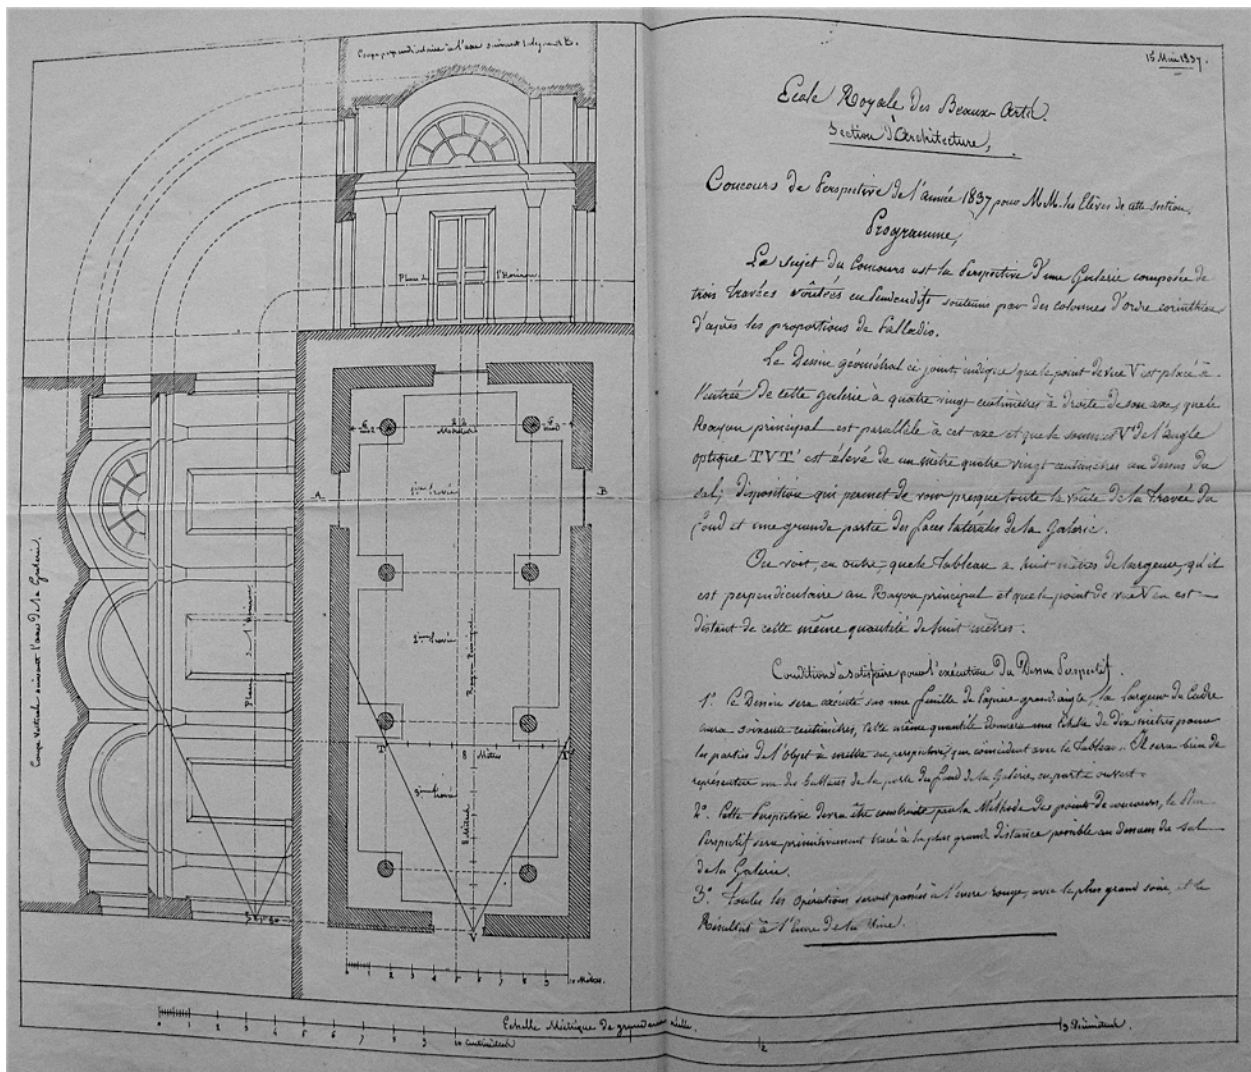 Coupe perpendiculaire à l'axe suivant la ligne A B.
Plan de l'Horison
Coupe Verticale suivant l'axe de la Galerie.
Plan de l'Horison
A
B
1ère Travée
2ème Travée
Rayon Principal
T
8 Mètres
T'
3ème Travée
8 Mètres
V
0 1 2 3 4 5 6 7 8 9 10 Mètres.
0 1 2 3 4 5 6 7 8 9 10 Centimètres
Echelle Métrique de grandeur réelle.
1/2
15 Mai 1837.
Ecole Royale des Beaux-Arts.
Section d'Architecture,
Concours de Perspective de l'année 1837 pour M M. les Elèves de cette section.
Programme,
Le sujet du Concours est la Perspective d'une Galerie composée de
trois travées voûtées en Pendentifs soutenus par des colonnes d'ordre corinthien
d'après les proportions de Palladio.
Le Dessin géométral ci-joint, indique que le point de vue V est placé à
l'entrée de cette galerie à quatre vingt centimètres à droite de son axe, que le
Rayon principal est parallèle à cet axe et que le sommet V de l'angle
optique TVT' est élevé de un mètre quatre vingt centimètres au dessus du
sol; disposition qui permet de voir presque toute la voûte de la travée du
fond et une grande partie des faces latérales de la Galerie.
On voit, en outre, que le Tableau a huit mètres de largeur, qu'il
est perpendiculaire au Rayon principal et que le point de vue V en est
distant de cette même quantité de huit mètres.
Conditions à satisfaire pour l'exécution du Dessin Perspectif.
1° Le Dessin sera exécuté sur une feuille de Papier grand-aigle, la largeur du Cadre
aura soixante centimètres, cette même quantité donnera une échelle de dix mètres pour
les parties de l'objet à mettre en perspective, qui coïncident avec le Tableau. Il sera bien de
représenter un des battans de la porte du fond de la Galerie, en partie ouvert.
2°. Cette Perspective devra être construite par la Méthode des points de concours, le Plan
Perspectif sera primitivement tracé à la plus grande distance possible au dessous du sol
de la Galerie.
3° Toutes les opérations seront passées à l'encre rouge, avec le plus grand soin, et le
Résultat à l'Encre de la Chine.